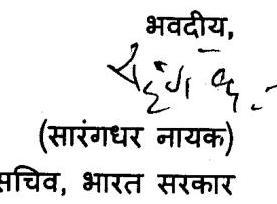 भवदीय,
(सारंगधर नायक)
सचिव, भारत सरकार